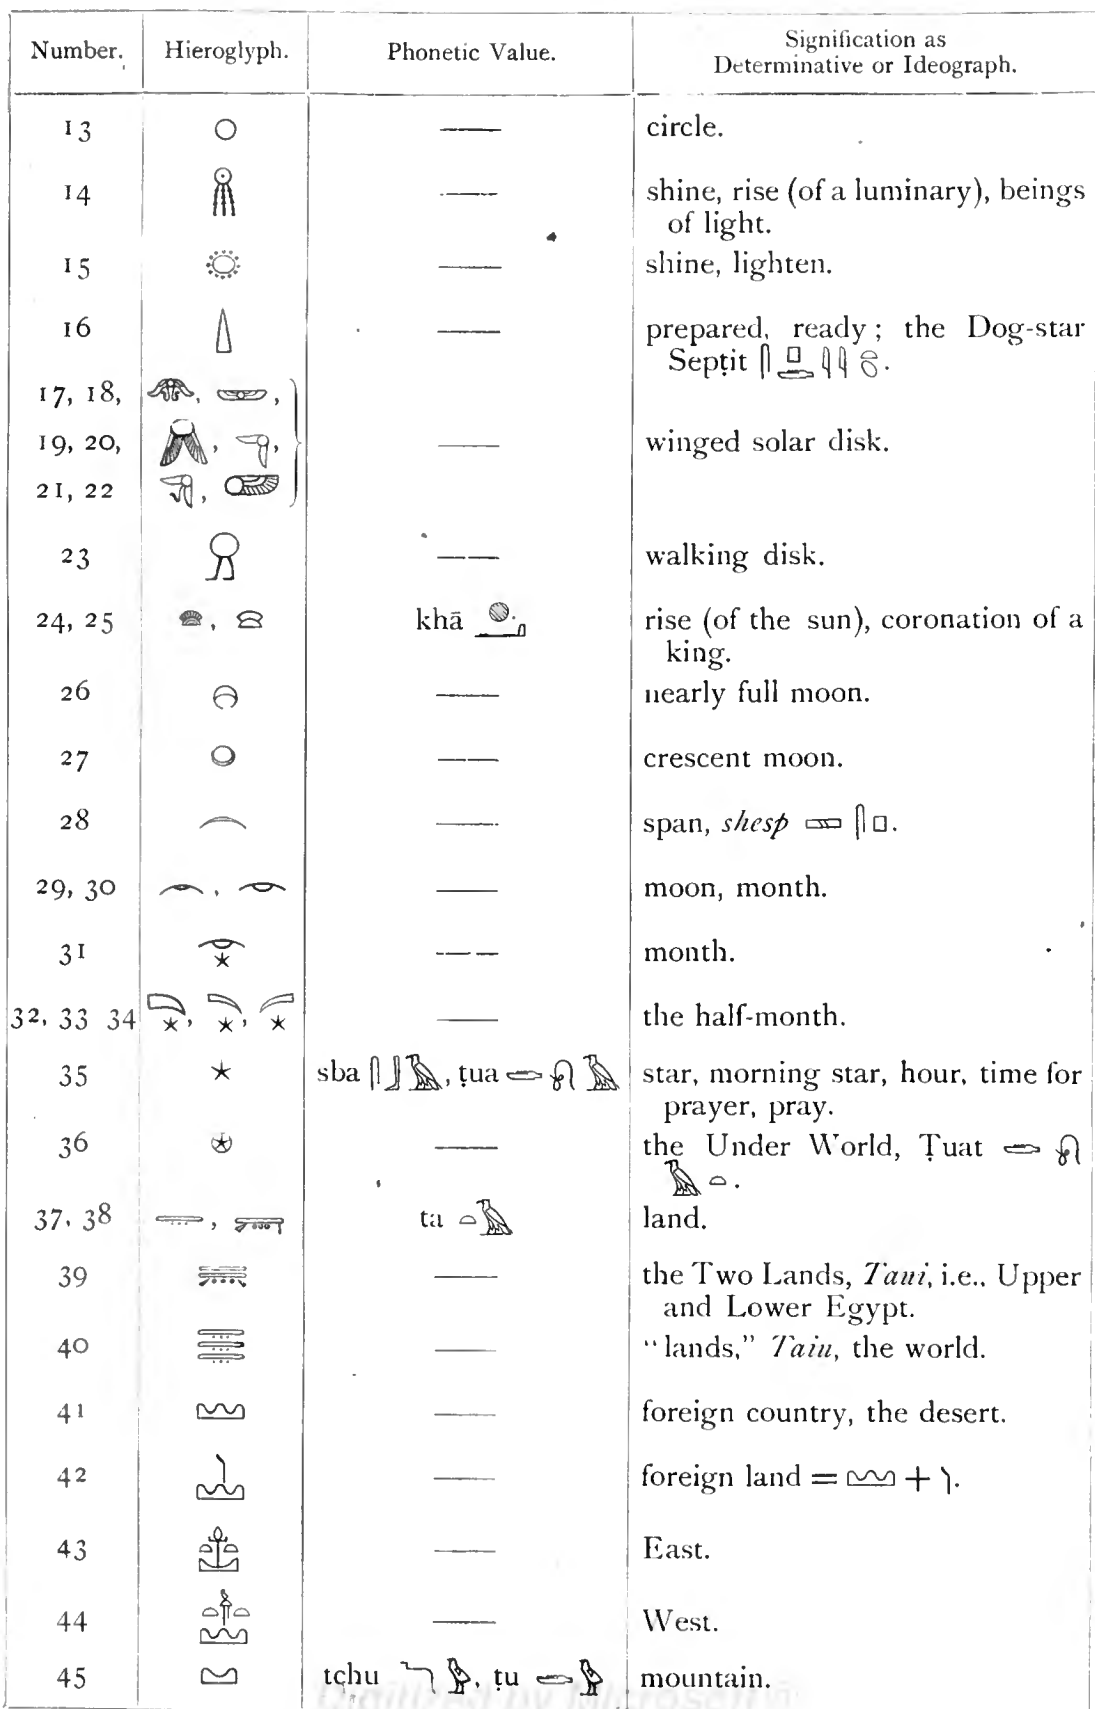 Number. Hieroglyph. Phonetic Value. Signification as Determinative or Ideograph.
13 — circle.
14 — shine, rise (of a luminary), beings
of light.
15 — shine, lighten.
16 — prepared, ready; the Dog-star
Sepṭit 𓋴𓊪𓂧𓇋𓇋
17, 18,
19, 20, — winged solar disk.
21, 22
23 — walking disk.
24, 25 khā 𓐍𓂝 rise (of the sun), coronation of a
king.
26 — nearly full moon.
27 — crescent moon.
28 — span, shesp 𓈙𓋴𓊪.
29, 30 — moon, month.
31 — month.
32, 33 34 — the half-month.
35 𓇼 sba 𓋴𓃀𓄿, ṭua 𓂧𓍯𓄿 star, morning star, hour, time for
prayer, pray.
36 𓇽 — the Under World, Ṭuat 𓂧𓍯
𓄿𓏏.
37, 38 𓇾, ta 𓏏𓄿 land.
39 — the Two Lands, Taui, i.e., Upper
and Lower Egypt.
40 — "lands," Taiu, the world.
41 𓈉 — foreign country, the desert.
42 — foreign land = 𓈉 + 𓌙.
43 — East.
44 — West.
45 𓈋 tchu 𓆓𓅱, ṭu 𓂧𓅱 mountain.
Digitized by Microsoft ®